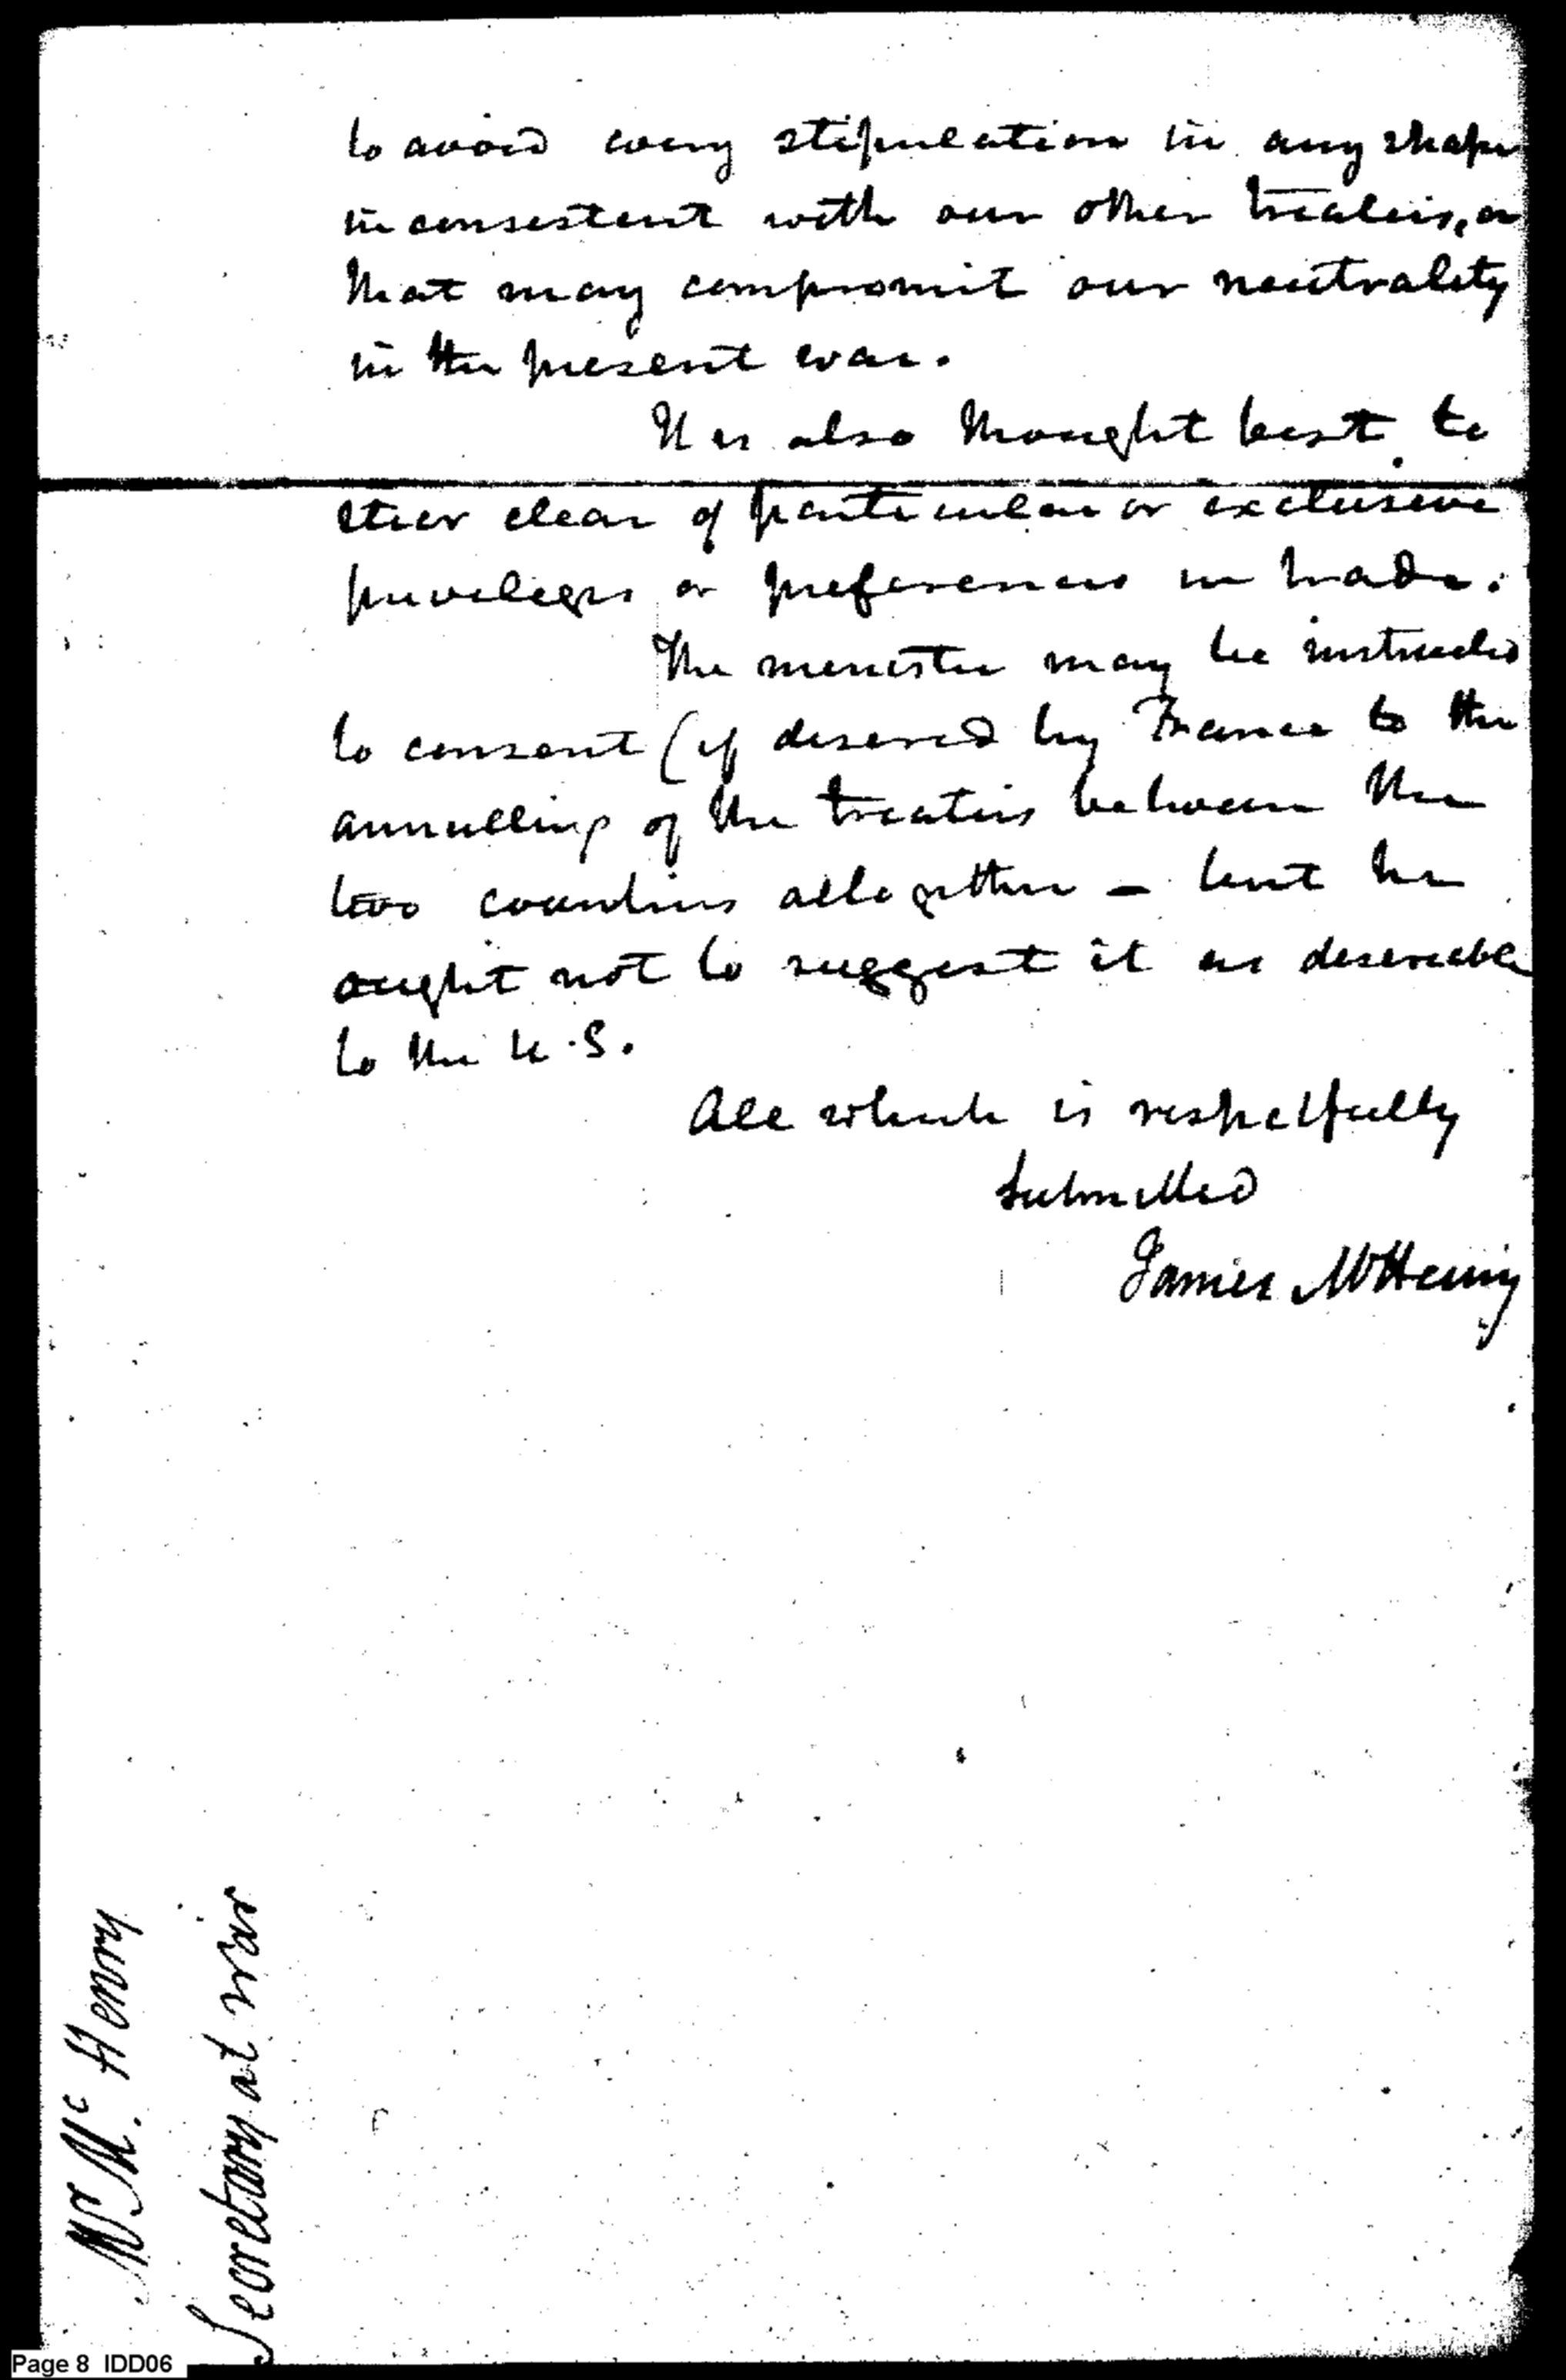 to avoid every stipulation in any shape
inconsistent with our other treaties, or
that may compromit our neutrality
in the present war.
It is also thought best to
steer clear of particular or exclusive
privileges or preferences in trade.
The minister may be instructed
to consent (if desired by France to the
annulling of the treaties between the
two countries altogether – but he
ought not to suggest it as desireable
to the U.S.
All which is respectfully
submitted
James McHenry
Mr Mc. Henry
Secretary at war
Page 8 IDD06